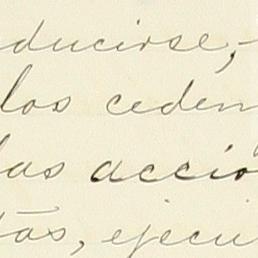 ducirse,-
los ceden
las accio
tas, ejecu